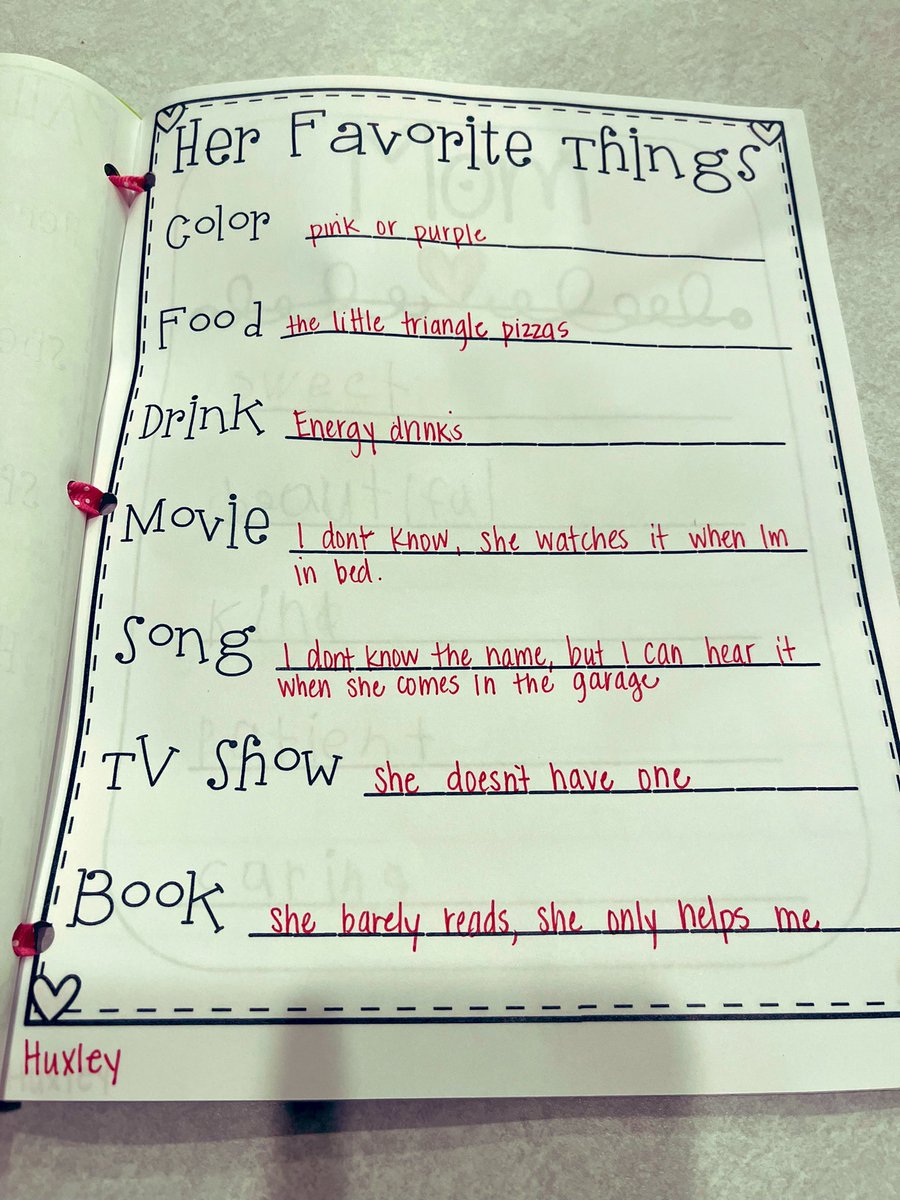 Her Favorite Things
Color pink or purple
Food the little triangle pizzas
Drink Energy drinks
Movie I dont know, she watches it when Im
in bed.
Song I dont know the name, but I can hear it
when she comes in the garage
TV Show she doesn't have one
Book she barely reads, she only helps me
Huxley
Mom
sweet
beautiful
kind
patient
caring